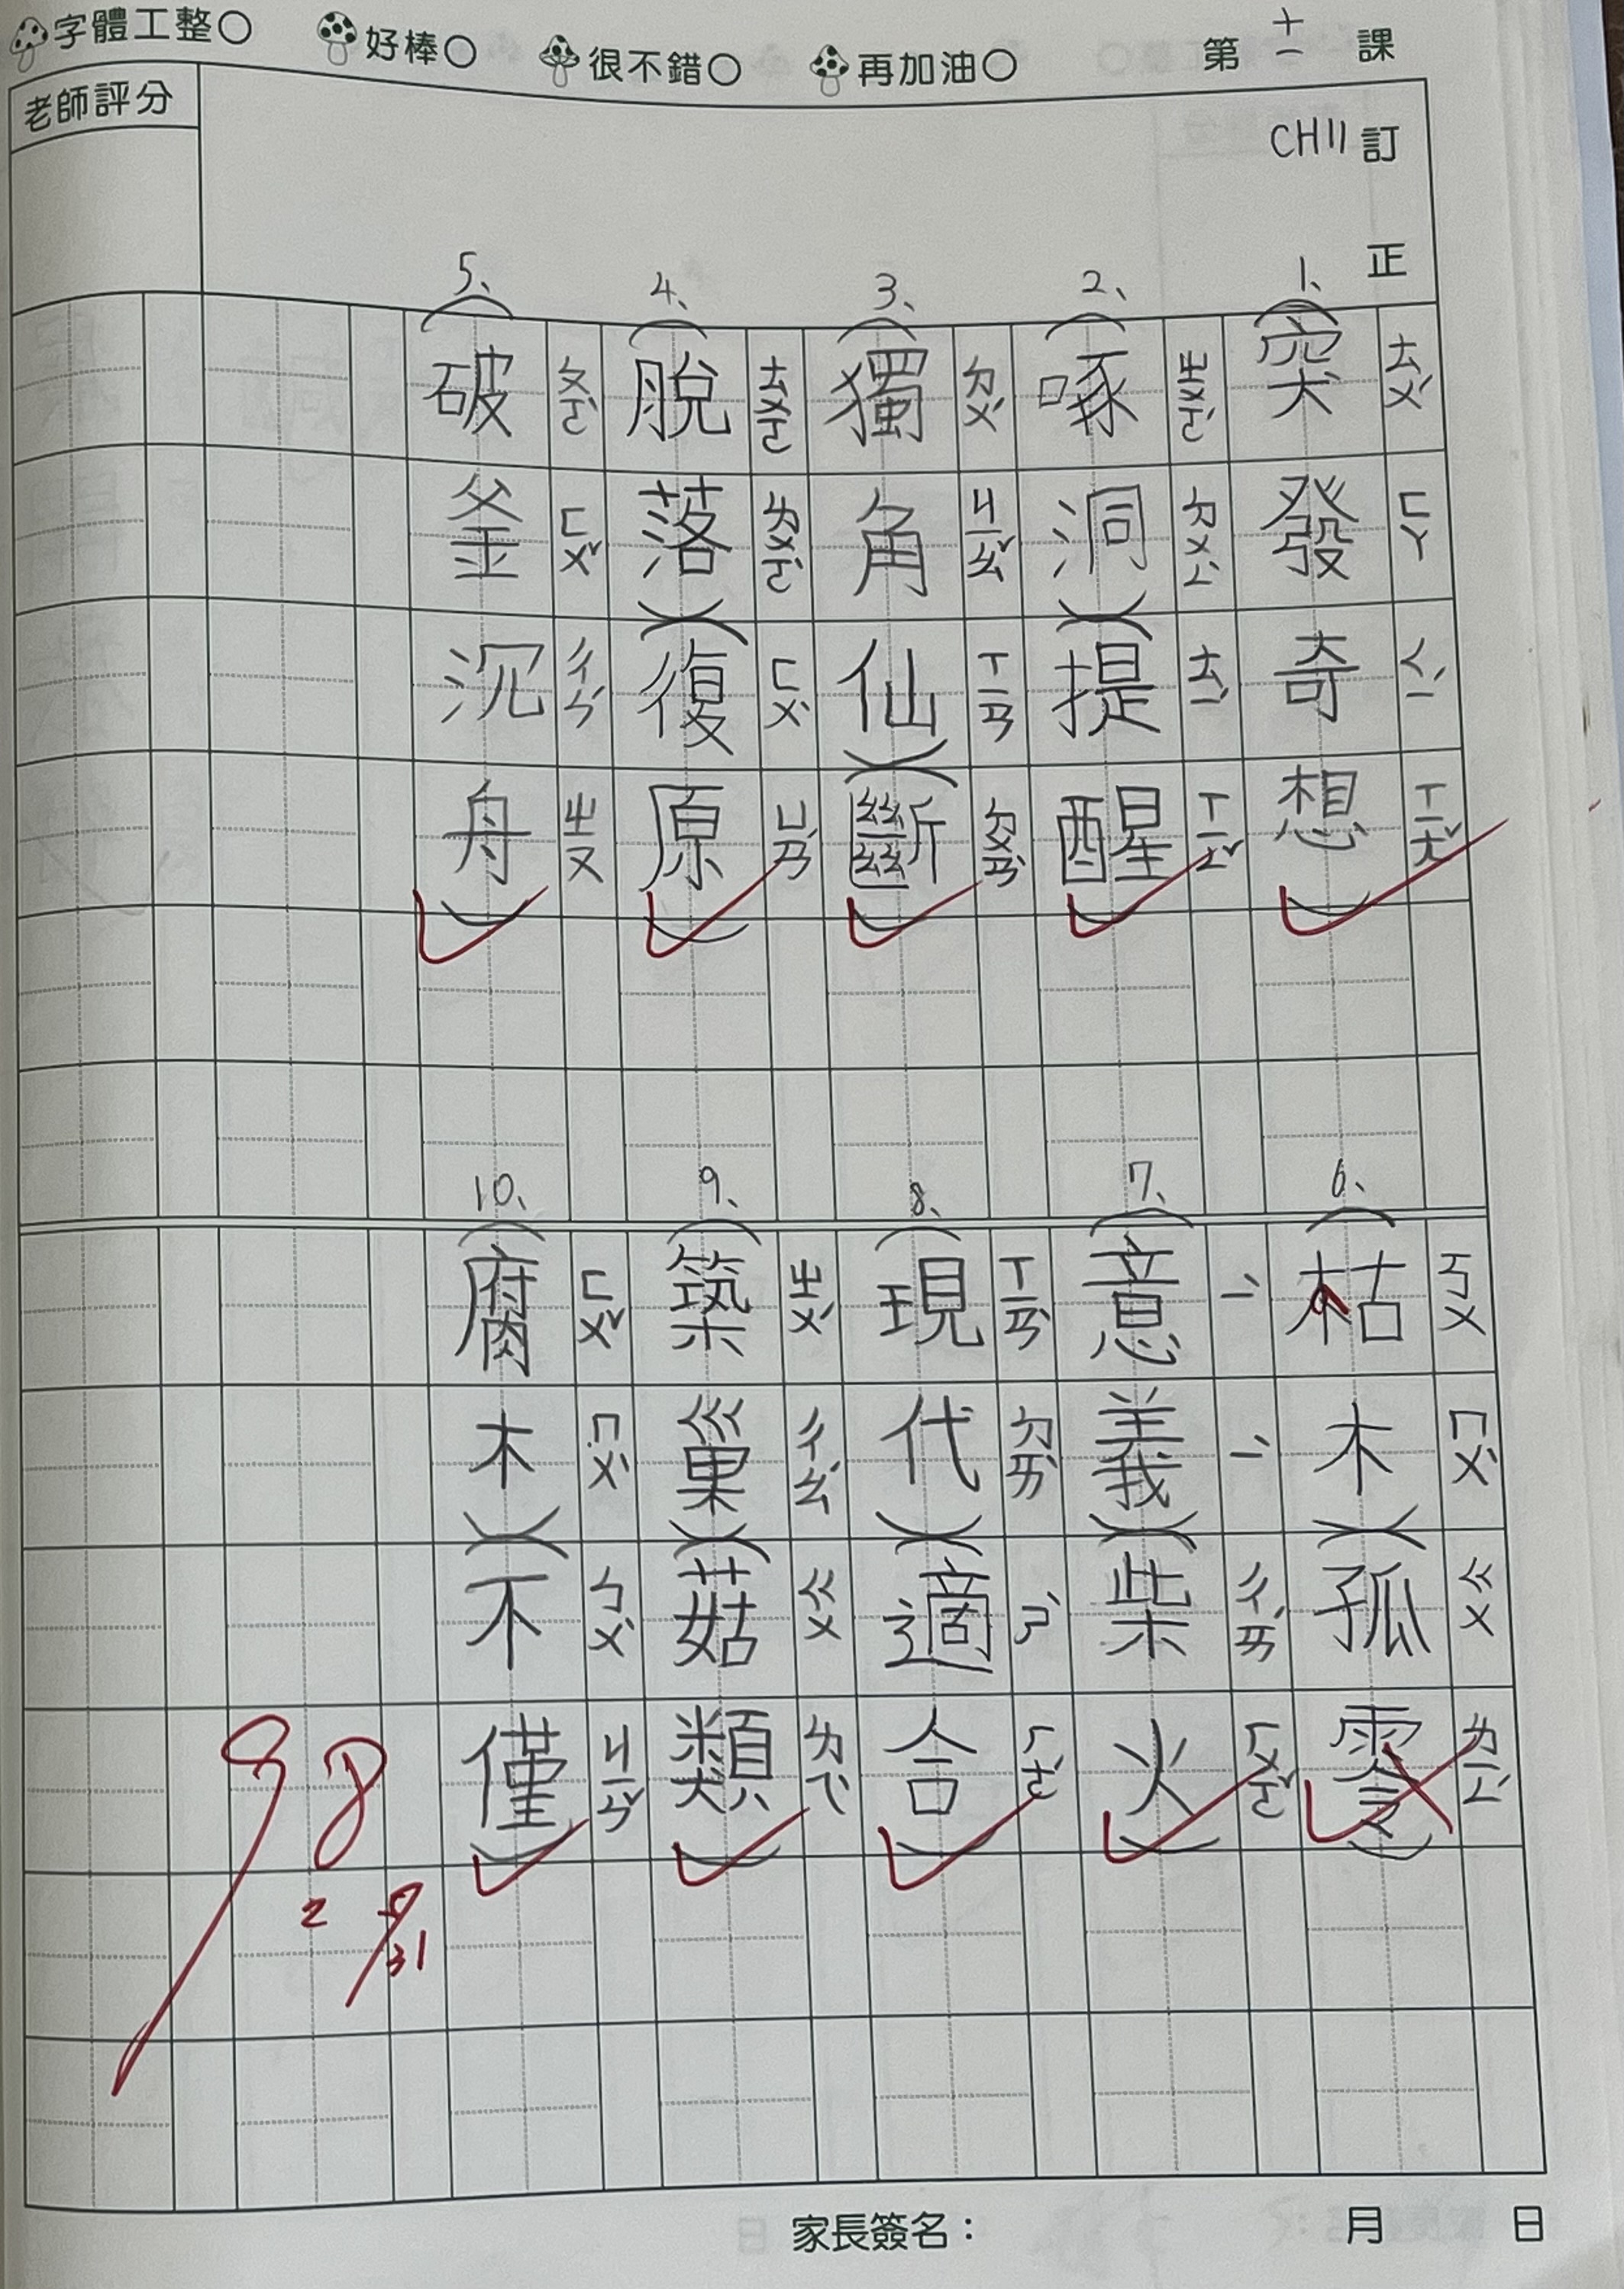 字體工整○ 好棒○ 很不錯○ 再加油○ 第十一課
老師評分
CH11 訂正
1、突發奇想 ㄊㄨˊ ㄈㄚ ㄑㄧˊ ㄒㄧㄤˇ
2、啄洞 提醒 ㄓㄨㄛˊ ㄉㄨㄥˋ ㄊㄧˊ ㄒㄧㄥˇ
3、獨角仙 斷 ㄉㄨˊ ㄐㄧㄠˇ ㄒㄧㄢ ㄉㄨㄢˋ
4、脫落 復原 ㄊㄨㄛ ㄌㄨㄛˋ ㄈㄨˋ ㄩㄢˊ
5、破釜沉舟 ㄆㄛˋ ㄈㄨˇ ㄔㄣˊ ㄓㄡ
6、枯木 孤零 ㄎㄨ ㄇㄨˋ ㄍㄨ ㄌㄧㄥˊ
7、意義 柴火 ㄧˋ ㄧˋ ㄔㄞˊ ㄏㄨㄛˇ
8、現代 適合 ㄒㄧㄢˋ ㄉㄞˋ ㄕˋ ㄏㄜˊ
9、築巢 菇類 ㄓㄨˊ ㄔㄠˊ ㄍㄨ ㄌㄟˋ
10、腐木 不僅 ㄈㄨˇ ㄇㄨˋ ㄅㄨˋ ㄐㄧㄣˇ
98
2 5/31
家長簽名： 月 日